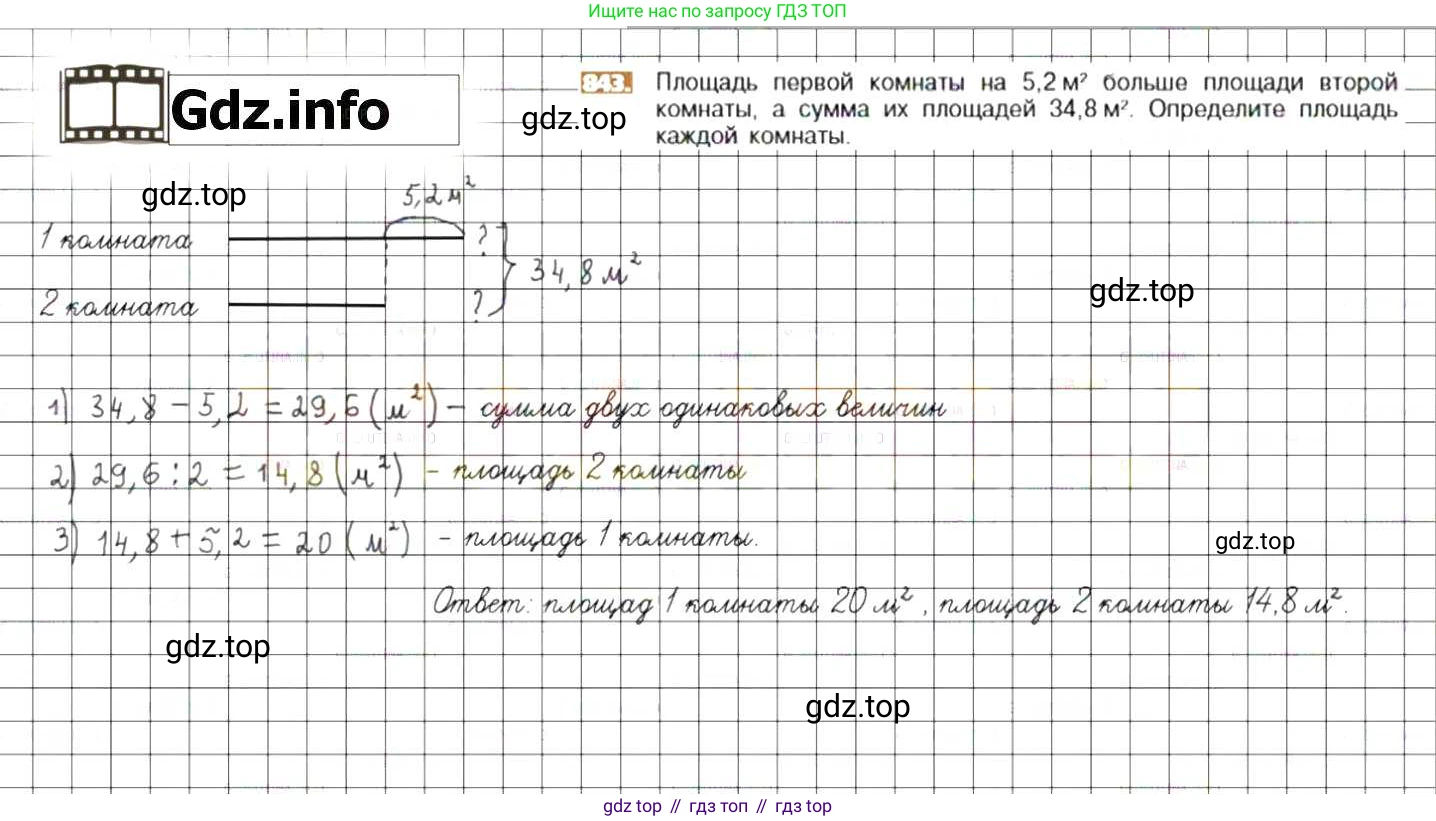 Ищите нас по запросу ГДЗ ТОП
Gdz.info
gdz.top
843. Площадь первой комнаты на 5,2 м² больше площади второй
комнаты, а сумма их площадей 34,8 м². Определите площадь
каждой комнаты.
gdz.top
5,2 м²
1 комната ?
34,8 м²
2 комната ?
gdz.top
1) 34,8 - 5,2 = 29,6 (м²) - сумма двух одинаковых величин
2) 29,6 : 2 = 14,8 (м²) - площадь 2 комнаты
3) 14,8 + 5,2 = 20 (м²) - площадь 1 комнаты.
gdz.top
Ответ: площад 1 комнаты 20 м², площадь 2 комнаты 14,8 м².
gdz.top
gdz.top
gdz top // гдз топ // гдз top